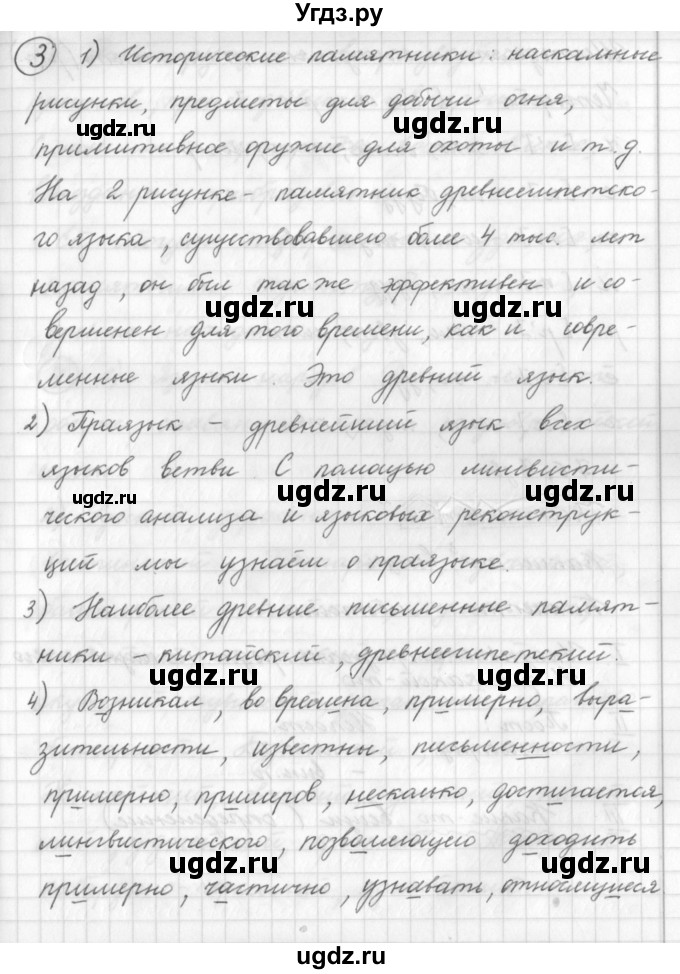 Угдз.ру
3 1) Исторические памятники: наскальные
рисунки, предметы для добычи огня,
примитивное оружие для охоты и т.д.
На 2 рисунке - памятник древнеегипетско-
го языка, существовавшего более 4 тыс. лет
назад, он был также эффективен и со-
вершенен для того времени, как и совре-
менные языки. Это древний язык.
2) Праязык - древнейший язык всех
языков ветви. С помощью лингвисти-
ческого анализа и языковых реконструк-
ций мы узнаём о праязыке.
3) Наиболее древние письменные памят-
ники - китайский, древнеегипетский.
4) Возникал, во времена, примерно, выра-
зительности, известны, письменности,
примерно, примеров, несколько, достигается,
лингвистического, позволяющего доходить
примерно, частично, узнавать, относящиеся
ugdz.ru
ugdz.ru
ugdz.ru
ugdz.ru
ugdz.ru
ugdz.ru
ugdz.ru
ugdz.ru
ugdz.ru
ugdz.ru
ugdz.ru
ugdz.ru
ugdz.ru